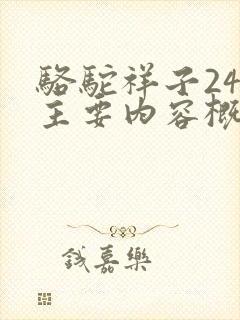 駱駝祥子24
主要內容概
錢嘉樂